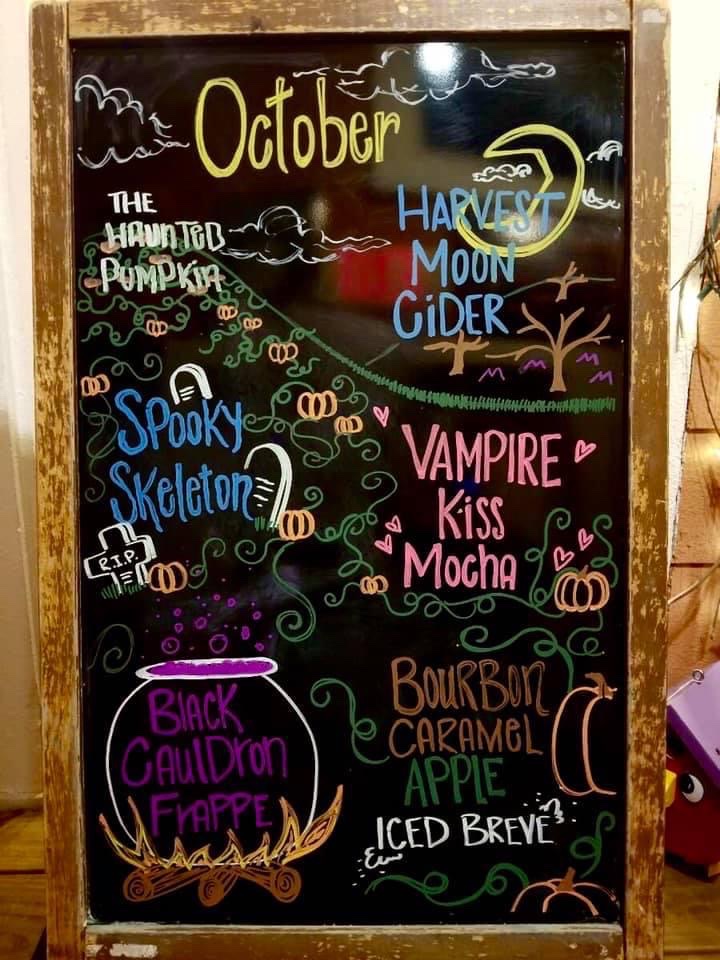 October
THE
HAUNTED
PUMPKIN
HARVEST
MOON
CiDER
SPOoKy
SKeleton
R.I.P.
VAMPIRE
Kiss
MocHA
BlAcK
CAulDron
FrAPPE
BouRBon
CARAMEL
APPLE
ICED BREVE